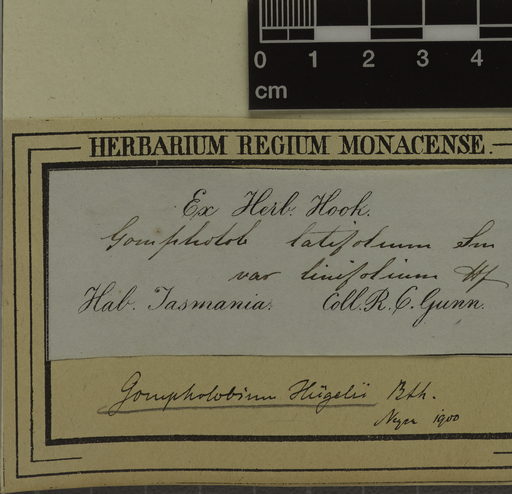 0 1 2 3 4
cm
HERBARIUM REGIUM MONACENSE.
Ex Herb. Hook.
Gompholob latifolium Sm
var linifolium
Hab. Tasmania. Coll. R. C. Gunn.
Gompholobium Hügelii Bth.
1900